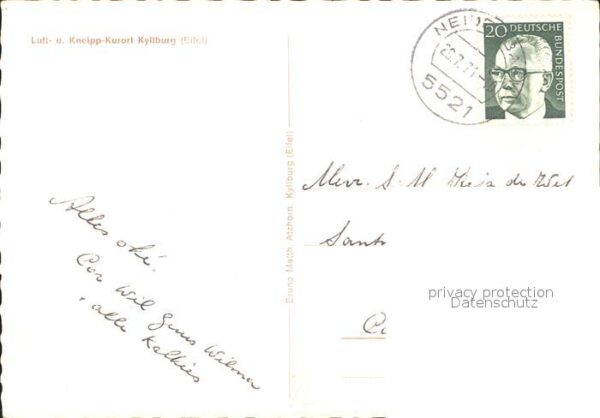 Luft- u. Kneipp-Kurort Kyllburg (Eifel)
20 DEUTSCHE
BUNDESPOST
5521
Bruno Matth. Atzhorn, Kyllburg (Eifel)
Alles oké.
Cor Wil Guus Wilma
+ alle
Mevr. S. M. de Wet
Sant
privacy protection
Datenschutz